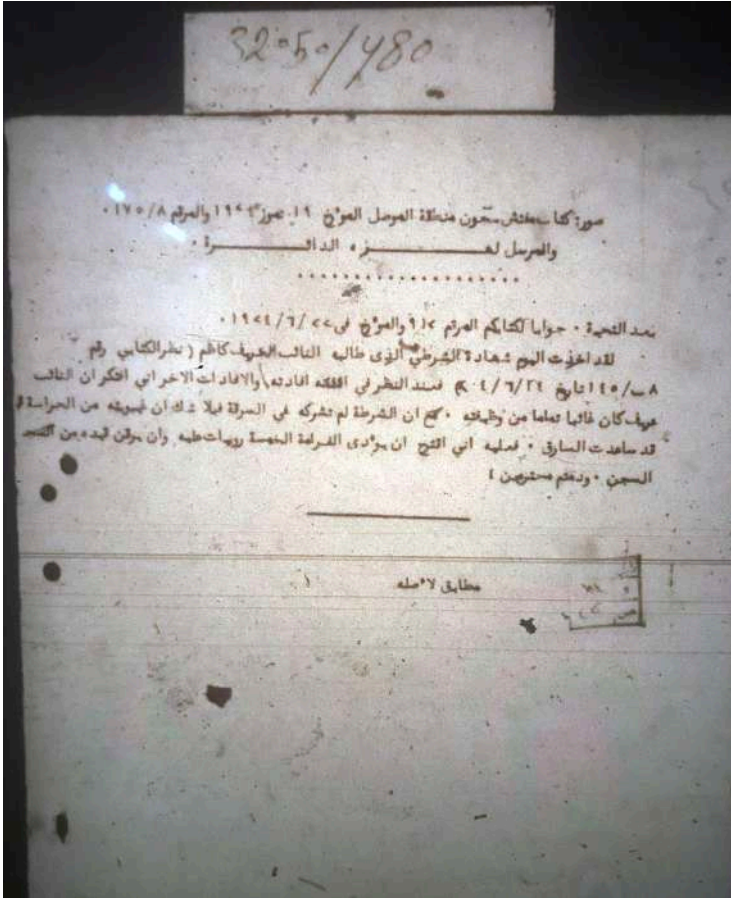 32050/480
صورة كتاب مفتش سجون منطقة الموصل المؤرخ ١٩ تموز ١٩٢٤ والمرقم ١٧٥/٨ .
والمرسل لهـــــــذه الدائـــــــرة .
. . . . . . . . . . . . . . . . . . .
بعد التحية . جوابا لكتابكم المرقم والمؤرخ في ٢٢/٦/١٩٢٤ .
لقد اخذت اليوم شهادة الشرطي الذى طالبه النائب العريف كاظم ( نظر الكتابي رقم
٨ س/١٤٥ تاريخ ٢٤/٦/٠٤ فعند النظر في افادته والافادات الاخر اني افتكر ان النائب
عريف كان غائبا تماما من وظيفته . مع ان الشرطة لم تشركه في السرقة فبلا شك ان غيبوبته من الحراسة
قد ساعدت السارق . فعليه اني اقترح ان يوءدى الغرامة الخمسة روبيات عليه وان يرقن قيده من
السجن . ودمتم محترمين !
مطابق لاءصله